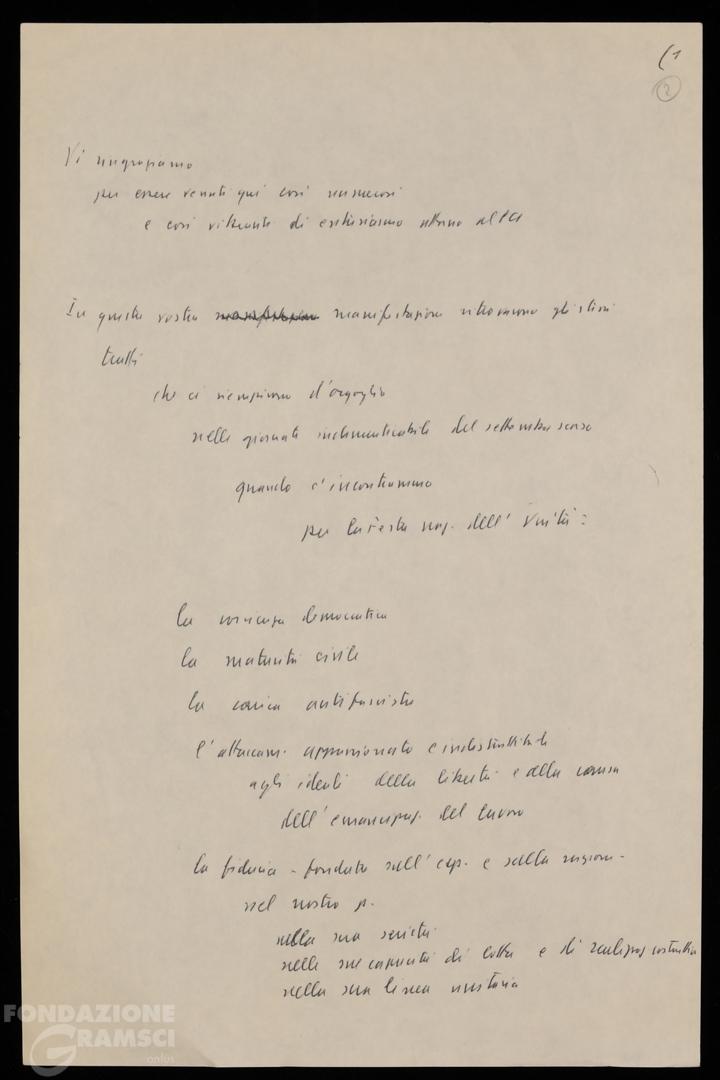 (1
2
Vi ringraziamo
per essere venuti qui così numerosi
e così vibranti di entusiasmo attorno al PCI
In questa vostra manifestazione ritroviamo gli stessi
tratti
che ci riempirono d'orgoglio
nelle giornate indimenticabili del settembre scorso
quando c'incontrammo
per la Festa naz. dell'Unità:
la coscienza democratica
la maturità civile
la carica antifascista
l'attaccam. appassionato e indistruttibile
agli ideali della libertà e della causa
dell'emancipaz. del lavoro
la fiducia - fondata sull'esp. e sulla ragione -
nel nostro p.
nella sua serietà
nelle sue capacità di lotta e di realizzaz. costruttiva
nella sua linea unitaria
FONDAZIONE
GRAMSCI
onlus